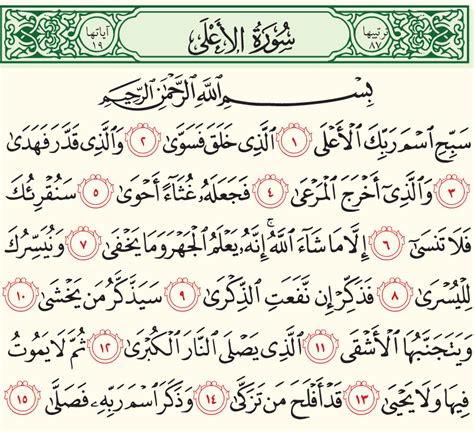 ترتيبها ٨٧ سُورَةُ الأَعْلَى آياتها ١٩
بِسْمِ اللَّهِ الرَّحْمَٰنِ الرَّحِيمِ
سَبِّحِ اسْمَ رَبِّكَ الْأَعْلَى ١ الَّذِي خَلَقَ فَسَوَّىٰ ٢ وَالَّذِي قَدَّرَ فَهَدَىٰ
٣ وَالَّذِي أَخْرَجَ الْمَرْعَىٰ ٤ فَجَعَلَهُ غُثَاءً أَحْوَىٰ ٥ سَنُقْرِئُكَ
فَلَا تَنسَىٰ ٦ إِلَّا مَا شَاءَ اللَّهُ ۚ إِنَّهُ يَعْلَمُ الْجَهْرَ وَمَا يَخْفَىٰ ٧ وَنُيَسِّرُكَ
لِلْيُسْرَىٰ ٨ فَذَكِّرْ إِن نَّفَعَتِ الذِّكْرَىٰ ٩ سَيَذَّكَّرُ مَن يَخْشَىٰ ١٠
وَيَتَجَنَّبُهَا الْأَشْقَى ١١ الَّذِي يَصْلَى النَّارَ الْكُبْرَىٰ ١٢ ثُمَّ لَا يَمُوتُ
فِيهَا وَلَا يَحْيَىٰ ١٣ قَدْ أَفْلَحَ مَن تَزَكَّىٰ ١٤ وَذَكَرَ اسْمَ رَبِّهِ فَصَلَّىٰ ١٥